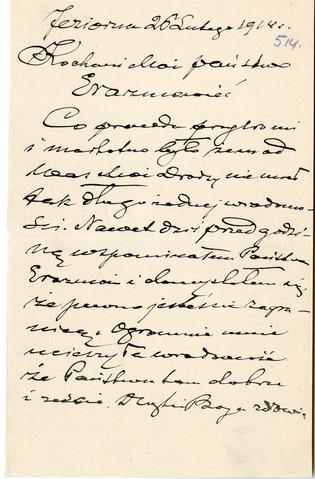 Jeziorna 26 Lutego 1914 r.
514.
Kochani Moi państwo
Erazmowie!
Co prawda przykro mi
i markotno było żem od
Was Moi Drodzy nie miał
tak długo żadnej wiadomo-
ści. Nawet dziś przed godzi-
ną wspominałem Państwa
Erazmów i domyślałem się,
że pewno jesteście zagra-
nicą, Ogromnie mnie
ucieszyła wiadomość
że Państwu tam dobrze
i zdrowi. Boga